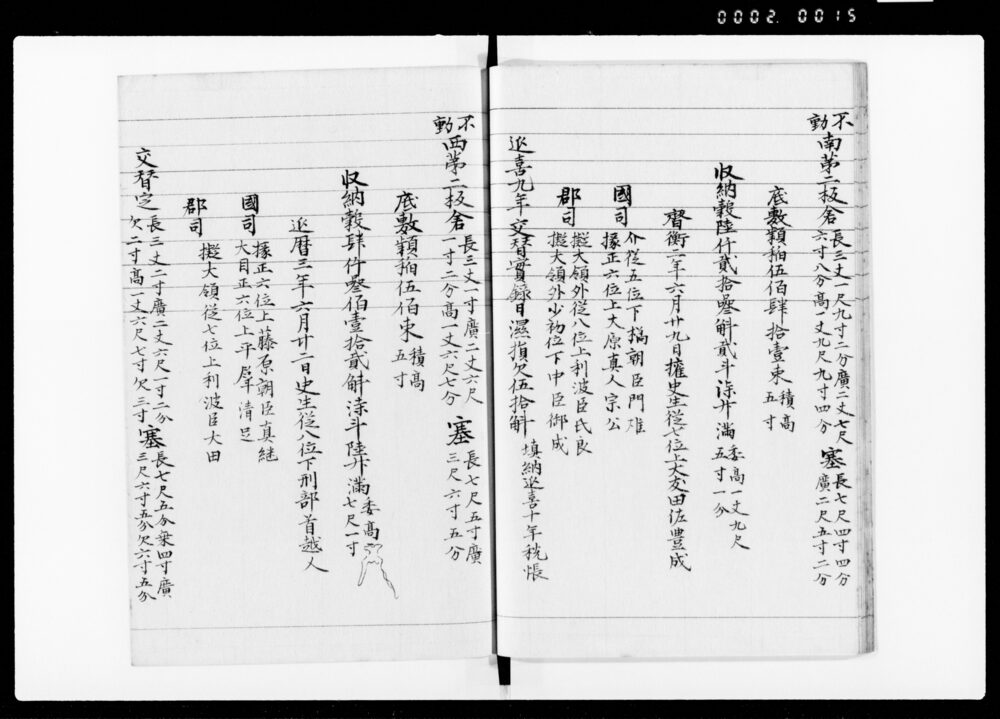 0002.0015
不動
南第二板倉
長三丈一尺九寸二分廣二丈七尺
六寸八分高一丈九尺九寸四分
塞
長七尺四寸四分
廣二尺五寸二分
底敷穎稲伍佰肆拾壹束
積高
五寸
収納穀陸仟貳拾叄斛貳斗柒升満
委高一丈九尺
五寸一分
齊衡二年六月廿九日擬史生従七位上大友田佐豊成
國司
介従五位下橘朝臣門雄
掾正六位上大原真人宗公
郡司
擬大領外従八位上利波臣氏良
擬大領外少初位下中臣御成
延喜九年交替實録日濕損欠伍拾斛
填納延喜十年税帳
不動
西第二板倉
長三丈一寸廣二丈六尺
一寸二分高一丈六尺七分
塞
長七尺五寸廣
三尺六寸五分
底敷穎稲伍佰束
積高
五寸
収納穀肆仟叄佰壹拾貳斛柒斗陸升満
委高
七尺一寸
延暦三年六月廿二日史生従八位下刑部首越人
國司
掾正六位上藤原朝臣真継
大目正六位上平群清足
郡司
擬大領従七位上利波臣大田
交替定
長三丈二寸廣二丈六尺一寸二分
欠二寸高一丈六尺七寸欠三寸
塞
長七尺五分乗四寸廣
三尺六寸五分欠六寸五分